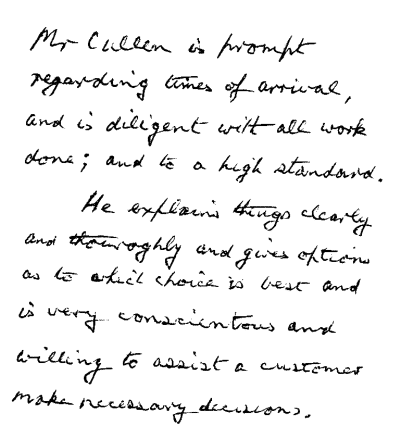 Mr Cullen is prompt
regarding times of arrival,
and is diligent with all work
done; and to a high standard.
He explains things clearly
and thouroghly and gives options
as to which choice is best and
is very conscientous and
willing to assist a customer
make necessary decisions.